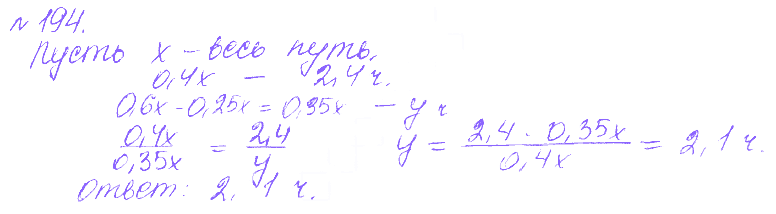 № 194.
Пусть x – весь путь.
0,4x – 2,4 ч.
0,6x - 0,25x = 0,35x – y ч
0,4x / 0,35x = 2,4 / y    y = 2,4 · 0,35x / 0,4x = 2,1 ч.
Ответ: 2,1 ч.